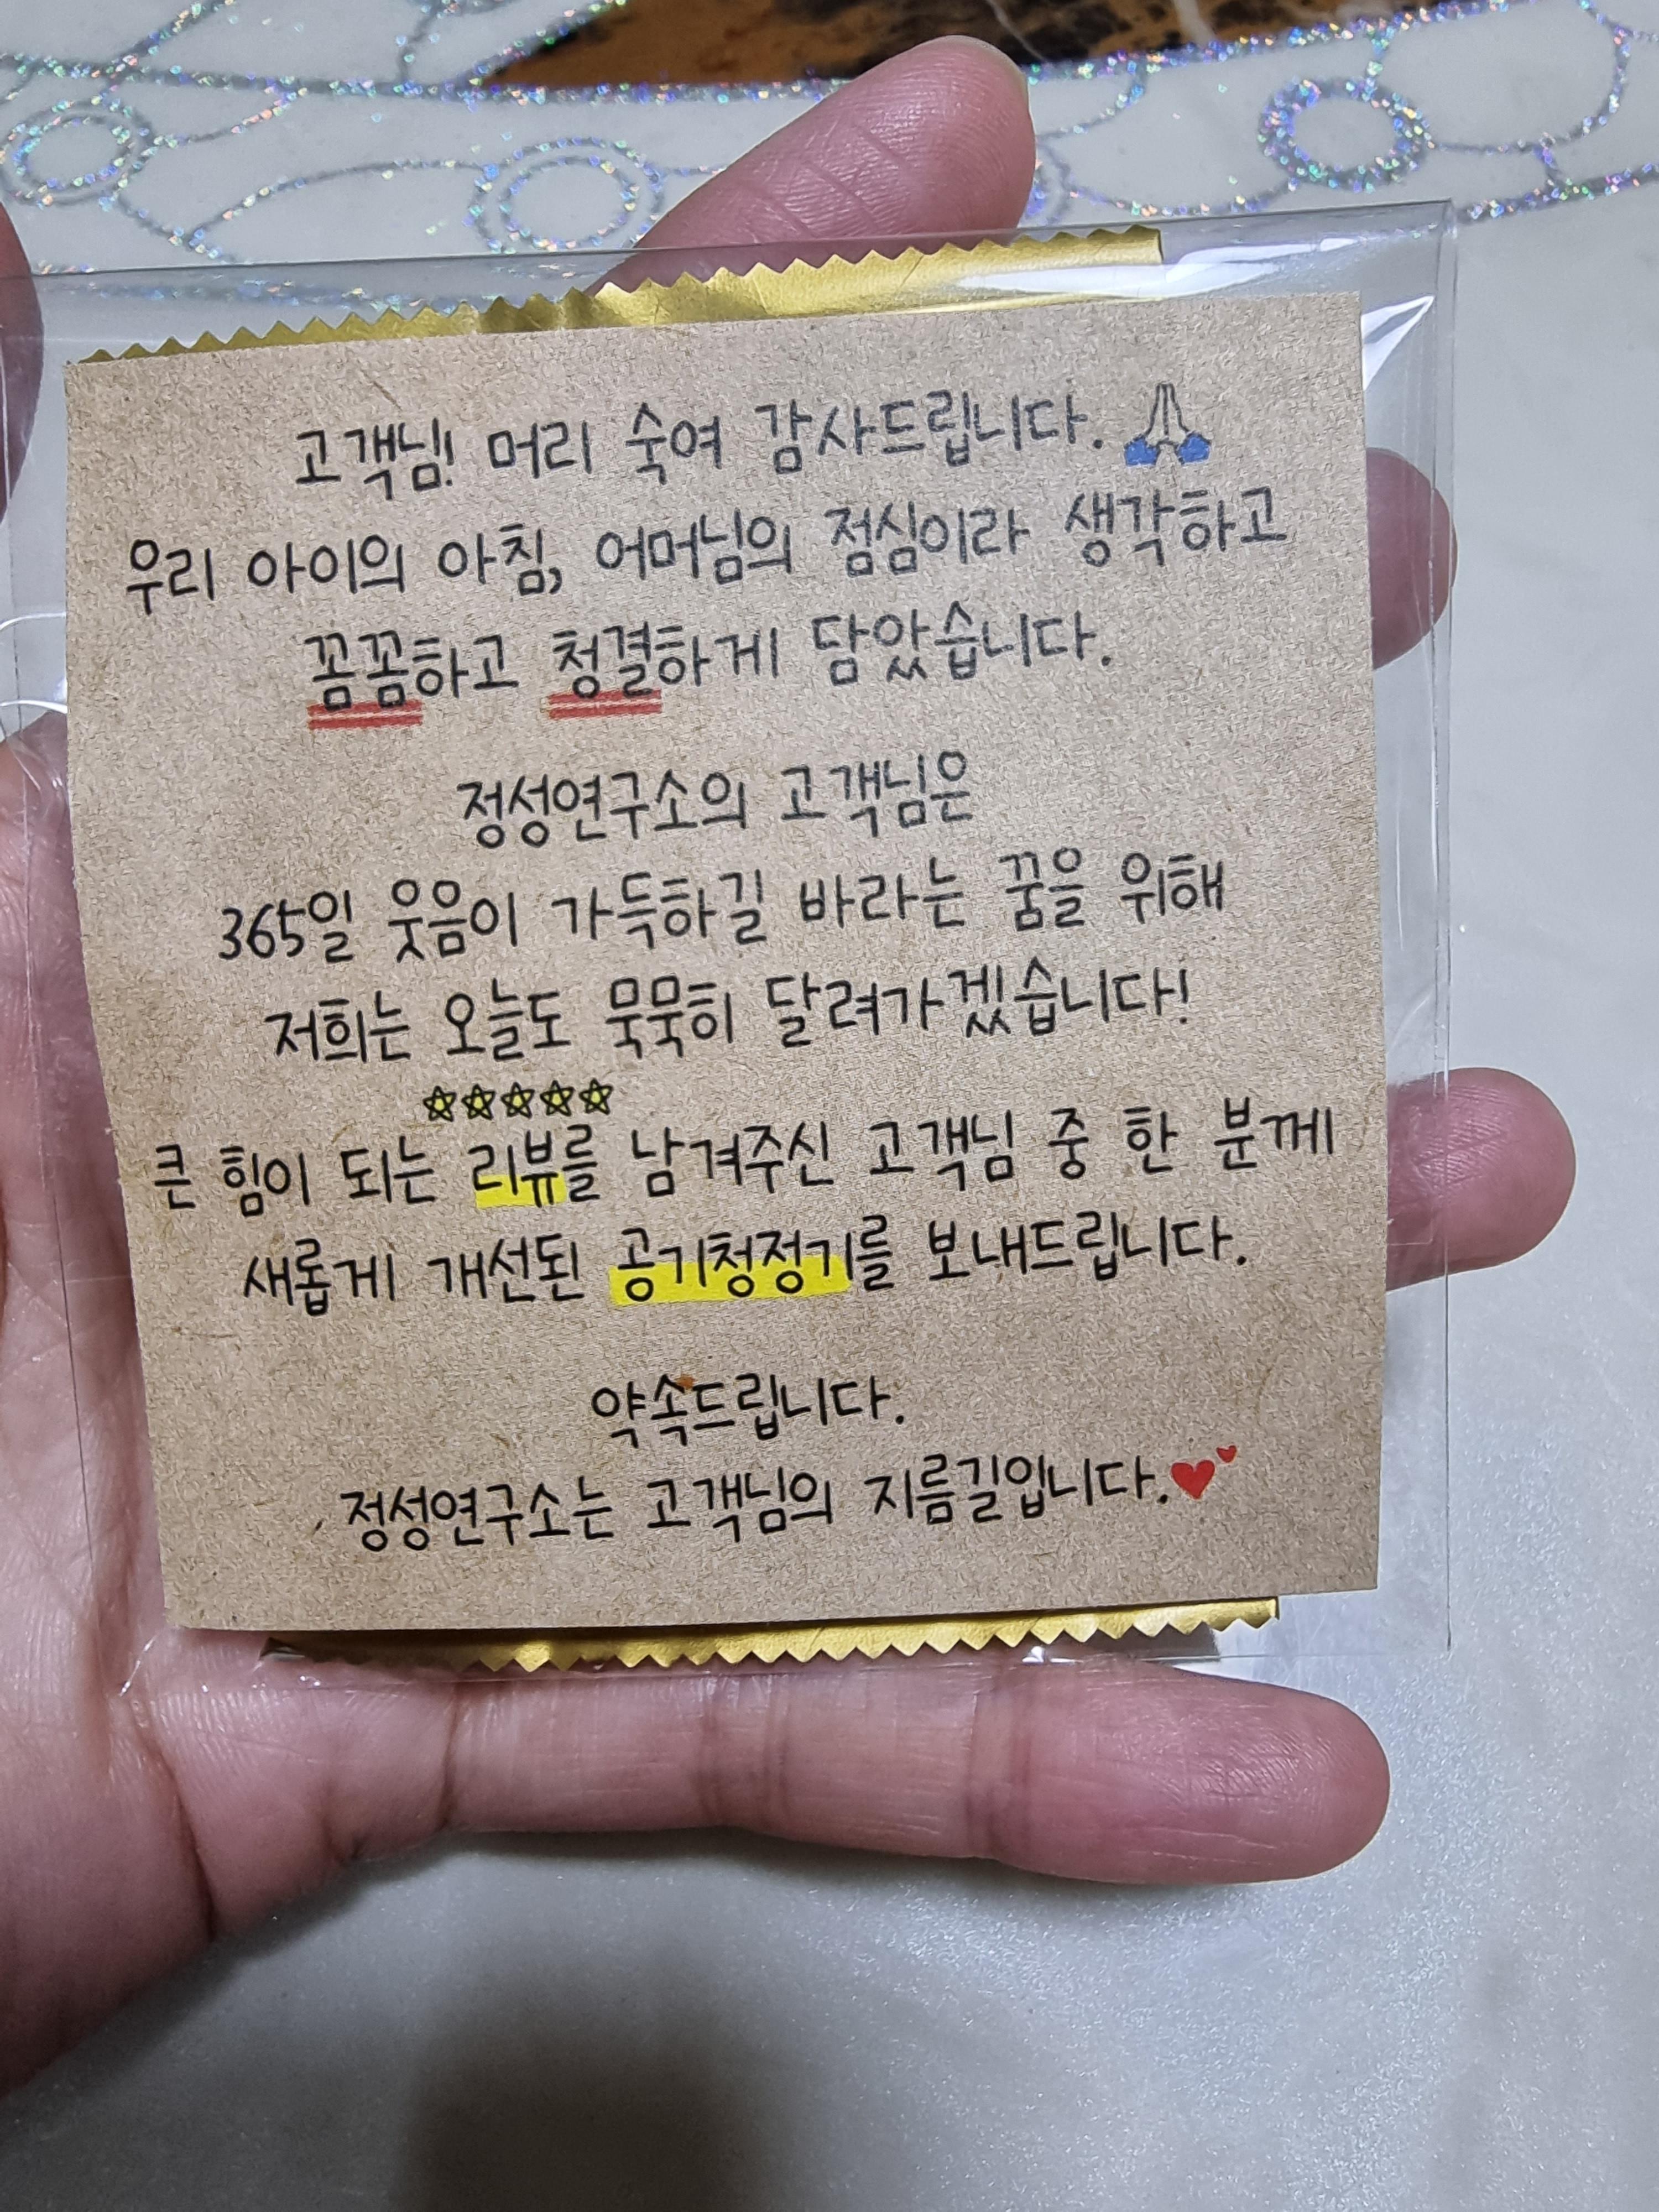 고객님! 머리 숙여 감사드립니다.
우리 아이의 아침, 어머님의 점심이라 생각하고
꼼꼼하고 청결하게 담았습니다.
정성연구소의 고객님은
365일 웃음이 가득하길 바라는 꿈을 위해
저희는 오늘도 묵묵히 달려가겠습니다!
큰 힘이 되는 리뷰를 남겨주신 고객님 중 한 분께
새롭게 개선된 공기청정기를 보내드립니다.
약속드립니다.
정성연구소는 고객님의 지름길입니다.